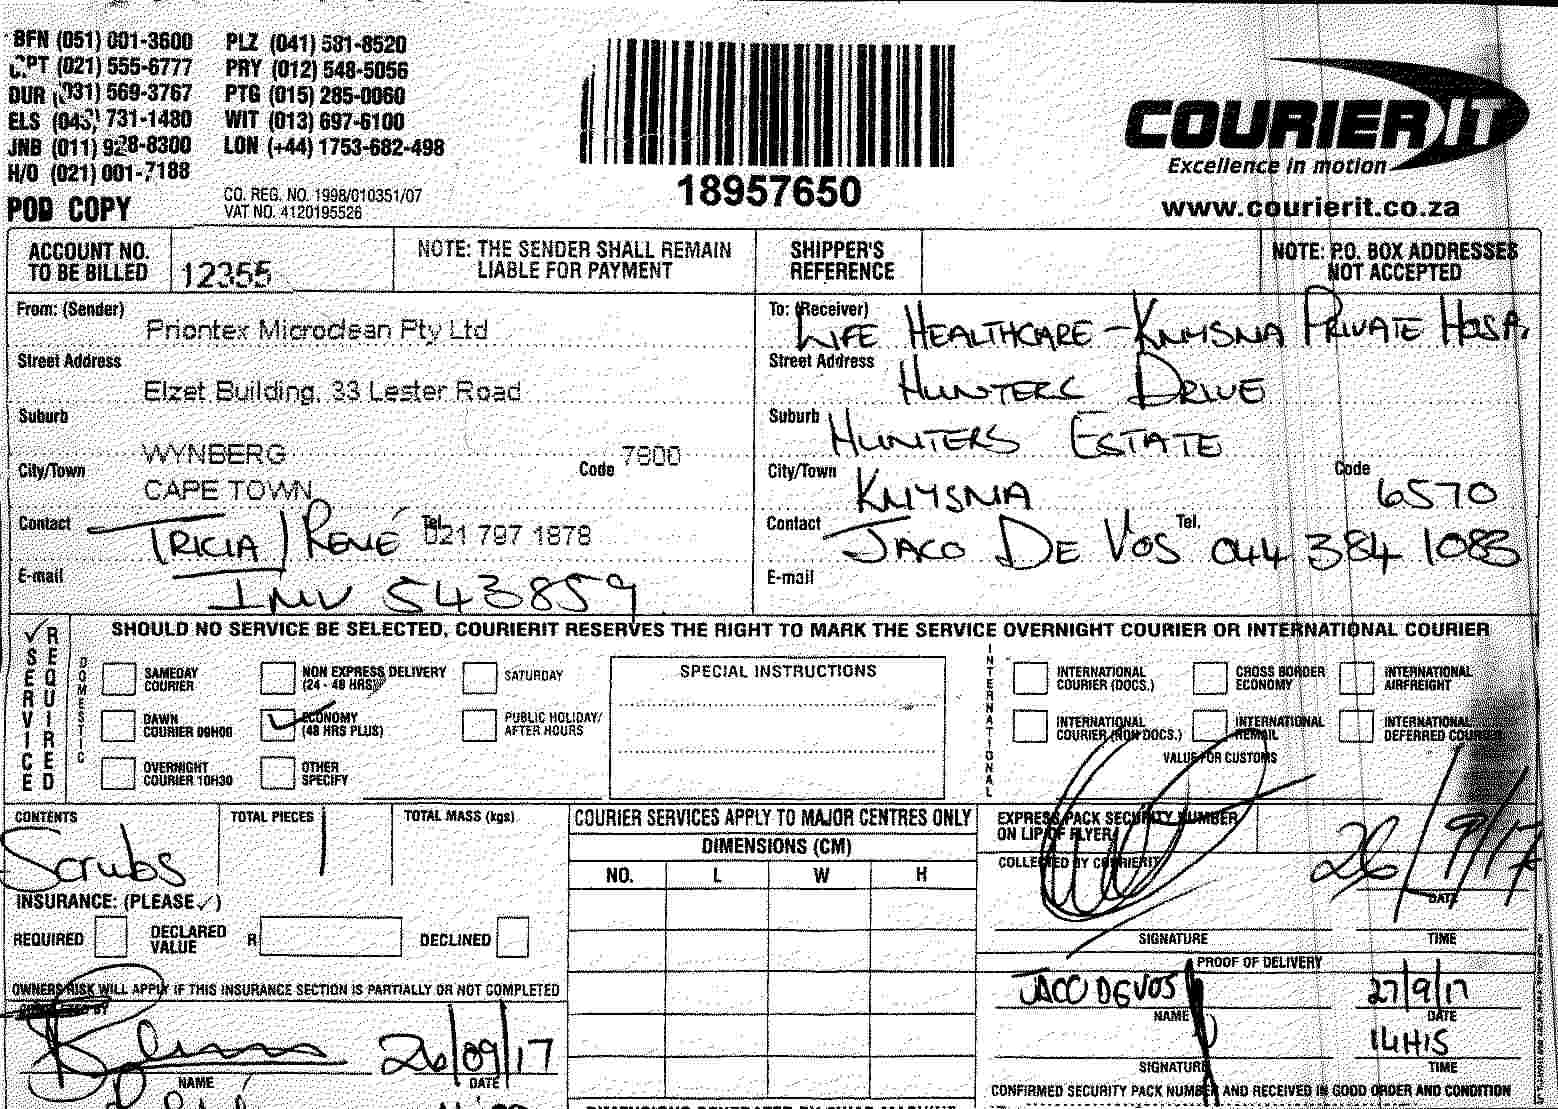 BFN (051) 001-3600 PLZ (041) 581-8520
CPT (021) 555-6777 PRY (012) 548-5056
DUR (031) 569-3767 PTG (015) 285-0060
ELS (043) 731-1480 WIT (013) 697-6100
JNB (011) 928-8300 LON (+44) 1753-682-498
H/O (021) 001-7188
POD COPY
CO. REG. NO. 1998/010351/07
VAT NO. 4120195526
18957650
COURIER IT
Excellence in motion
www.courierit.co.za
ACCOUNT NO. TO BE BILLED 12355
NOTE: THE SENDER SHALL REMAIN LIABLE FOR PAYMENT
SHIPPER'S REFERENCE
NOTE: P.O. BOX ADDRESSES NOT ACCEPTED
From: (Sender) Priontex Microclean Pty Ltd
Street Address Elzet Building, 33 Lester Road
Suburb WYNBERG
City/Town CAPE TOWN Code 7800
Contact TRICIA / RENÉ Tel. 021 797 1878
E-mail INV 543859
To: (Receiver) LIFE HEALTHCARE - KNYSNA PRIVATE HOSP.
Street Address HUNTERS DRIVE
Suburb HUNTERS ESTATE
City/Town KNYSNA Code 6570
Contact JACO DE VOS Tel. 044 384 1083
E-mail
✓ SERVICE REQUIRED
SHOULD NO SERVICE BE SELECTED, COURIERIT RESERVES THE RIGHT TO MARK THE SERVICE OVERNIGHT COURIER OR INTERNATIONAL COURIER
DOMESTIC
SAMEDAY COURIER
NON EXPRESS DELIVERY (24 - 48 HRS)
SATURDAY
DAWN COURIER 09H00
✓ ECONOMY (48 HRS PLUS)
PUBLIC HOLIDAY/ AFTER HOURS
OVERNIGHT COURIER 10H30
OTHER SPECIFY
SPECIAL INSTRUCTIONS
INTERNATIONAL
INTERNATIONAL COURIER (DOCS.)
CROSS BORDER ECONOMY
INTERNATIONAL AIRFREIGHT
INTERNATIONAL COURIER (NON DOCS.)
INTERNATIONAL REMAIL
INTERNATIONAL DEFERRED COURIER
VALUE FOR CUSTOMS
CONTENTS Scrubs
TOTAL PIECES 1
TOTAL MASS (kgs)
INSURANCE: (PLEASE ✓)
REQUIRED DECLARED VALUE R DECLINED
OWNERS RISK WILL APPLY IF THIS INSURANCE SECTION IS PARTIALLY OR NOT COMPLETED
26/09/17
NAME DATE
COURIER SERVICES APPLY TO MAJOR CENTRES ONLY
DIMENSIONS (CM)
NO. L W H
EXPRESS PACK SECURITY NUMBER ON LIP OF FLYER
COLLECTED BY COURIERIT
26/9/17
DATE
SIGNATURE TIME
PROOF OF DELIVERY
JACO DE VOS 27/9/17
NAME DATE
14H15
SIGNATURE TIME
CONFIRMED SECURITY PACK NUMBER AND RECEIVED IN GOOD ORDER AND CONDITION